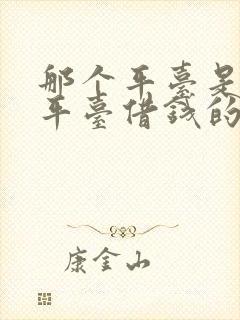 那个平臺是
平臺借錢的
康金山